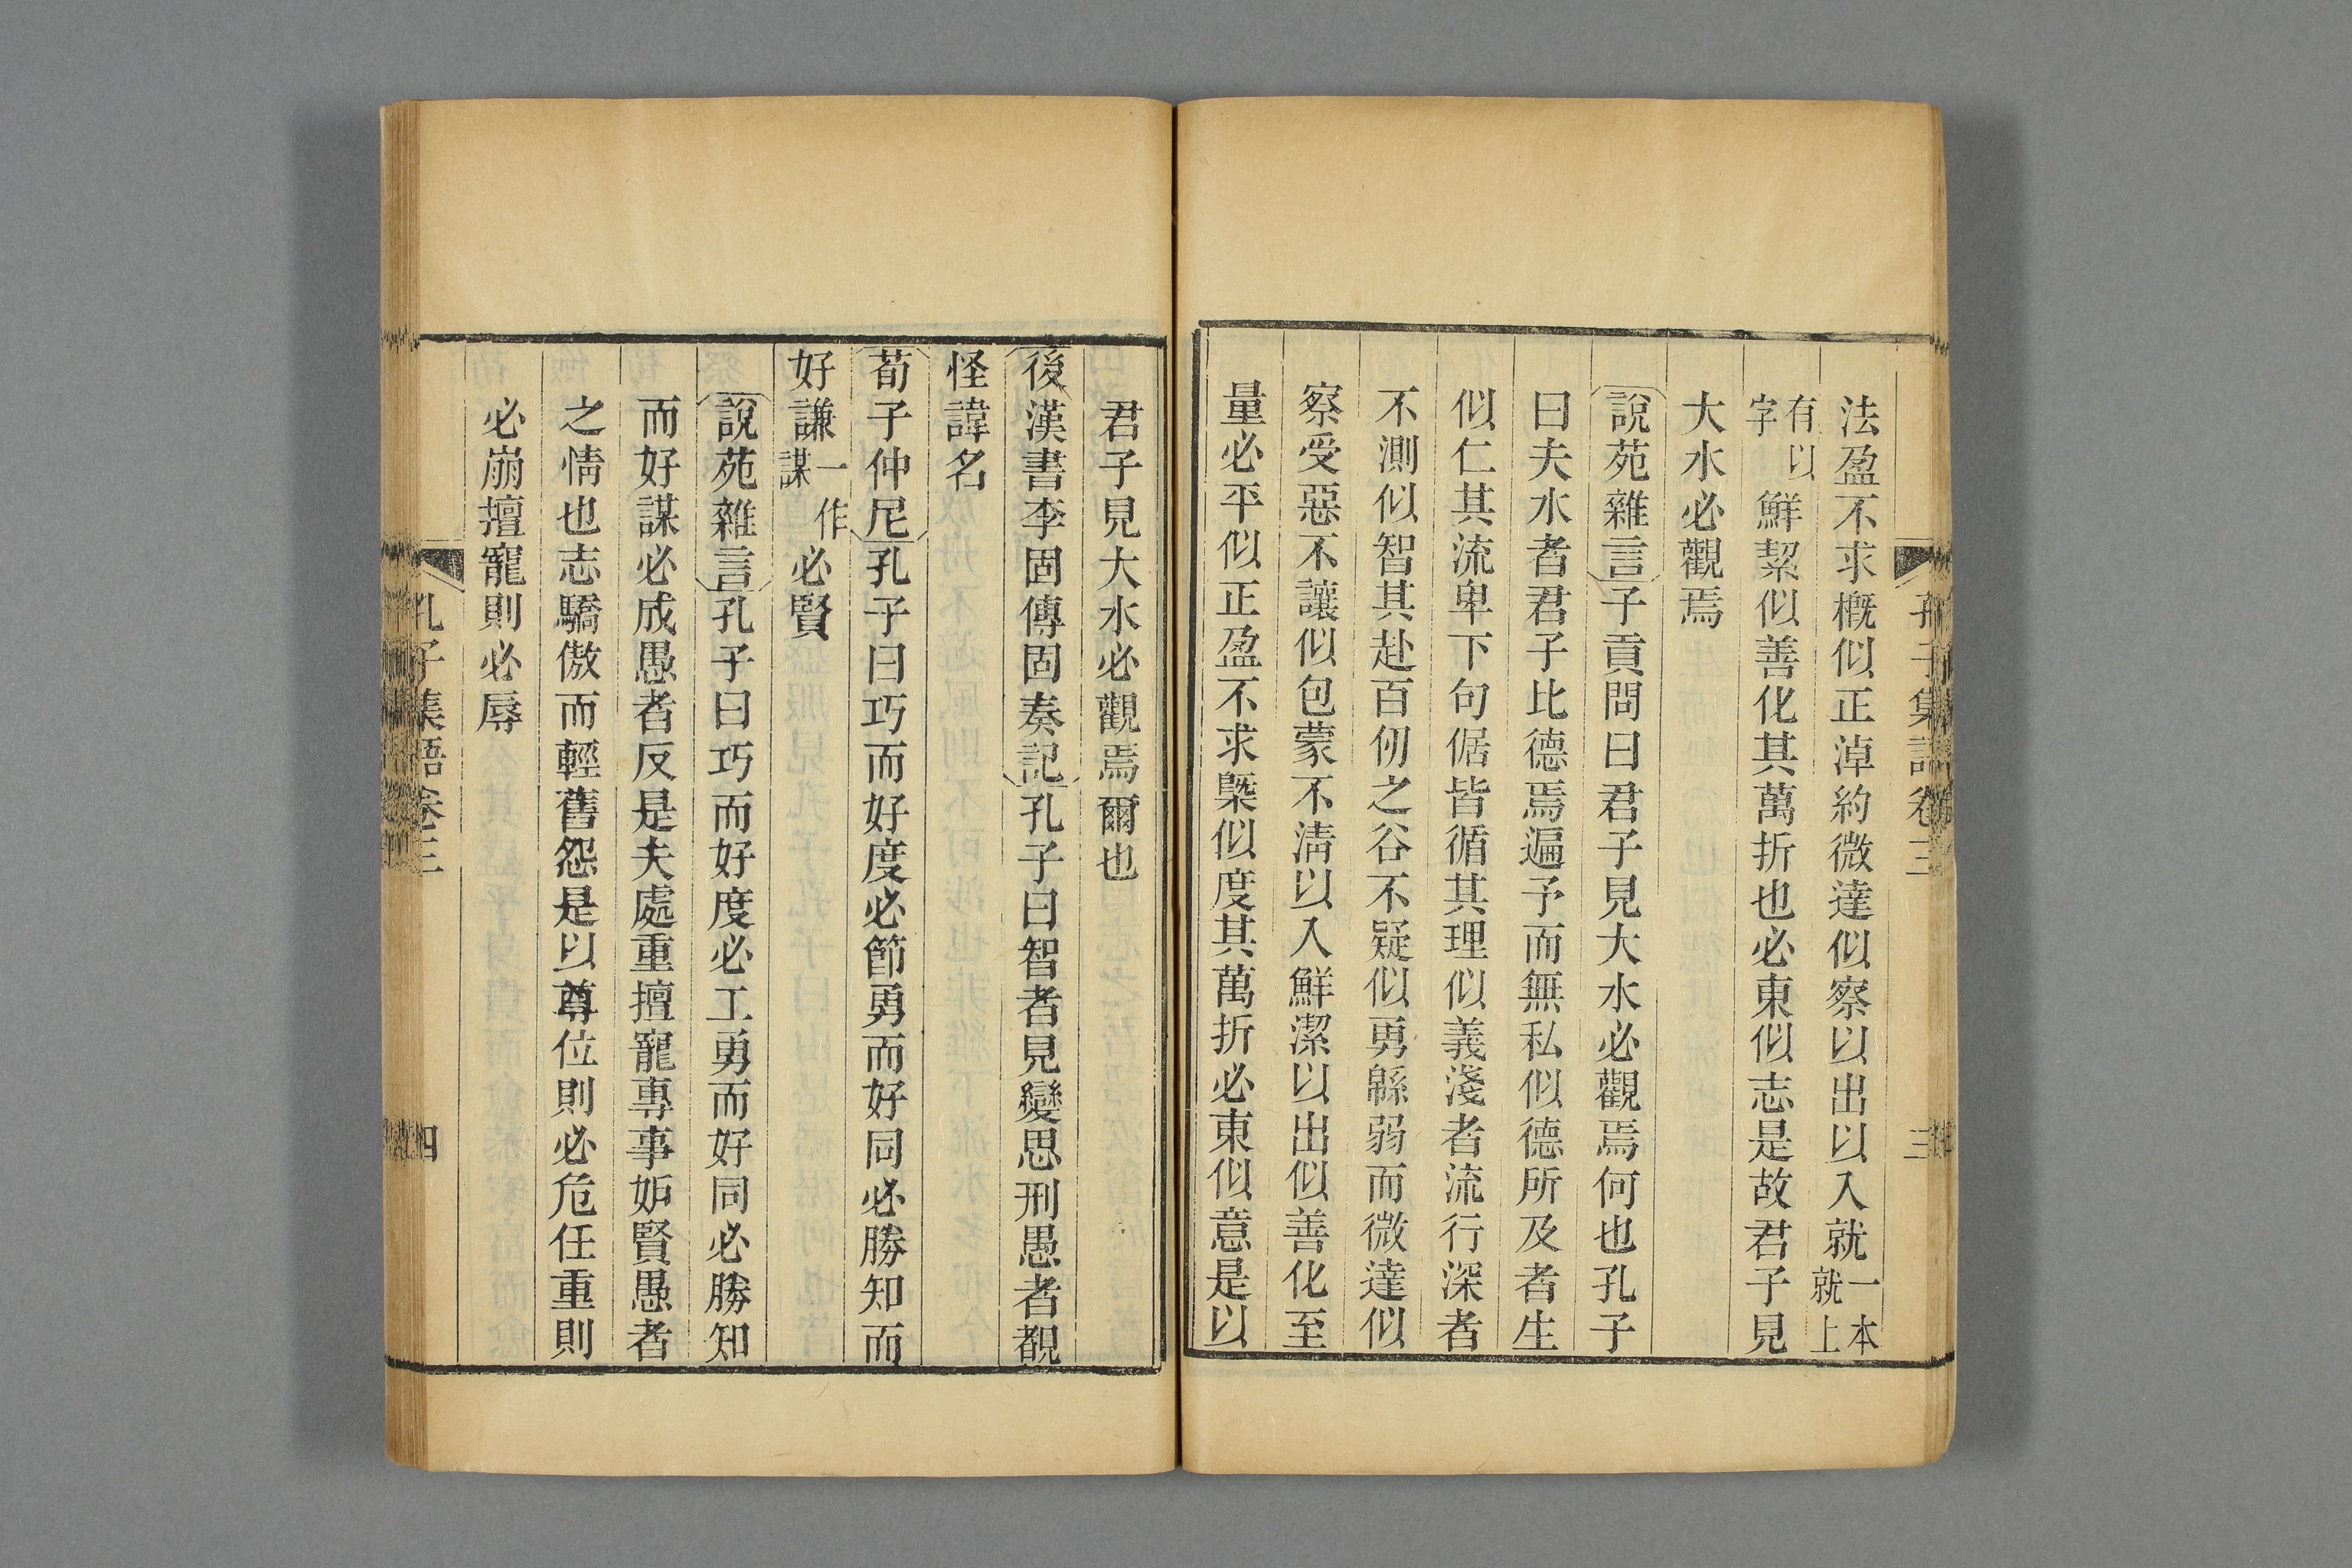 孔子集語卷三
三
法盈不求槪似正淖約微達似察以出以入就一本就上
有以字鮮絜似善化其萬折也必東似志是故君子見
大水必觀焉
說苑雜言子貢問曰君子見大水必觀焉何也孔子
曰夫水者君子比德焉遍予而無私似德所及者生
似仁其流卑下句倨皆循其理似義淺者流行深者
不測似智其赴百仞之谷不疑似勇緜弱而微達似
察受惡不讓似包蒙不淸以入鮮潔以出似善化至
量必平似正盈不求槩似度其萬折必東似意是以
君子見大水必觀焉爾也
後漢書李固傳固奏記孔子曰智者見變思刑愚者覩
怪諱名
荀子仲尼孔子曰巧而好度必節勇而好同必勝知而
好謙一作謀必賢
說苑雜言孔子曰巧而好度必工勇而好同必勝知
而好謀必成愚者反是夫處重擅寵專事妬賢愚者
之情也志驕傲而輕舊怨是以尊位則必危任重則
必崩擅寵則必辱
孔子集語卷三
四